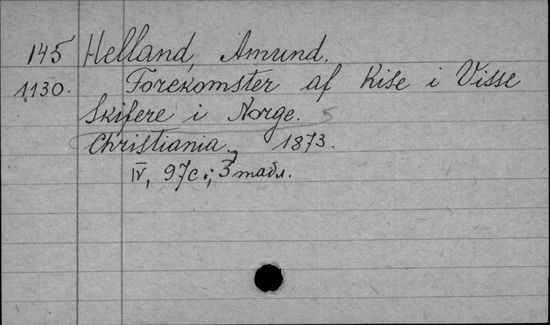 145 Helland, Amund.
1130. Forekomster af Kise i Visse
Skifere i Norge. 5
Christiania, 1873.
IV, 97c.; 3 табл.